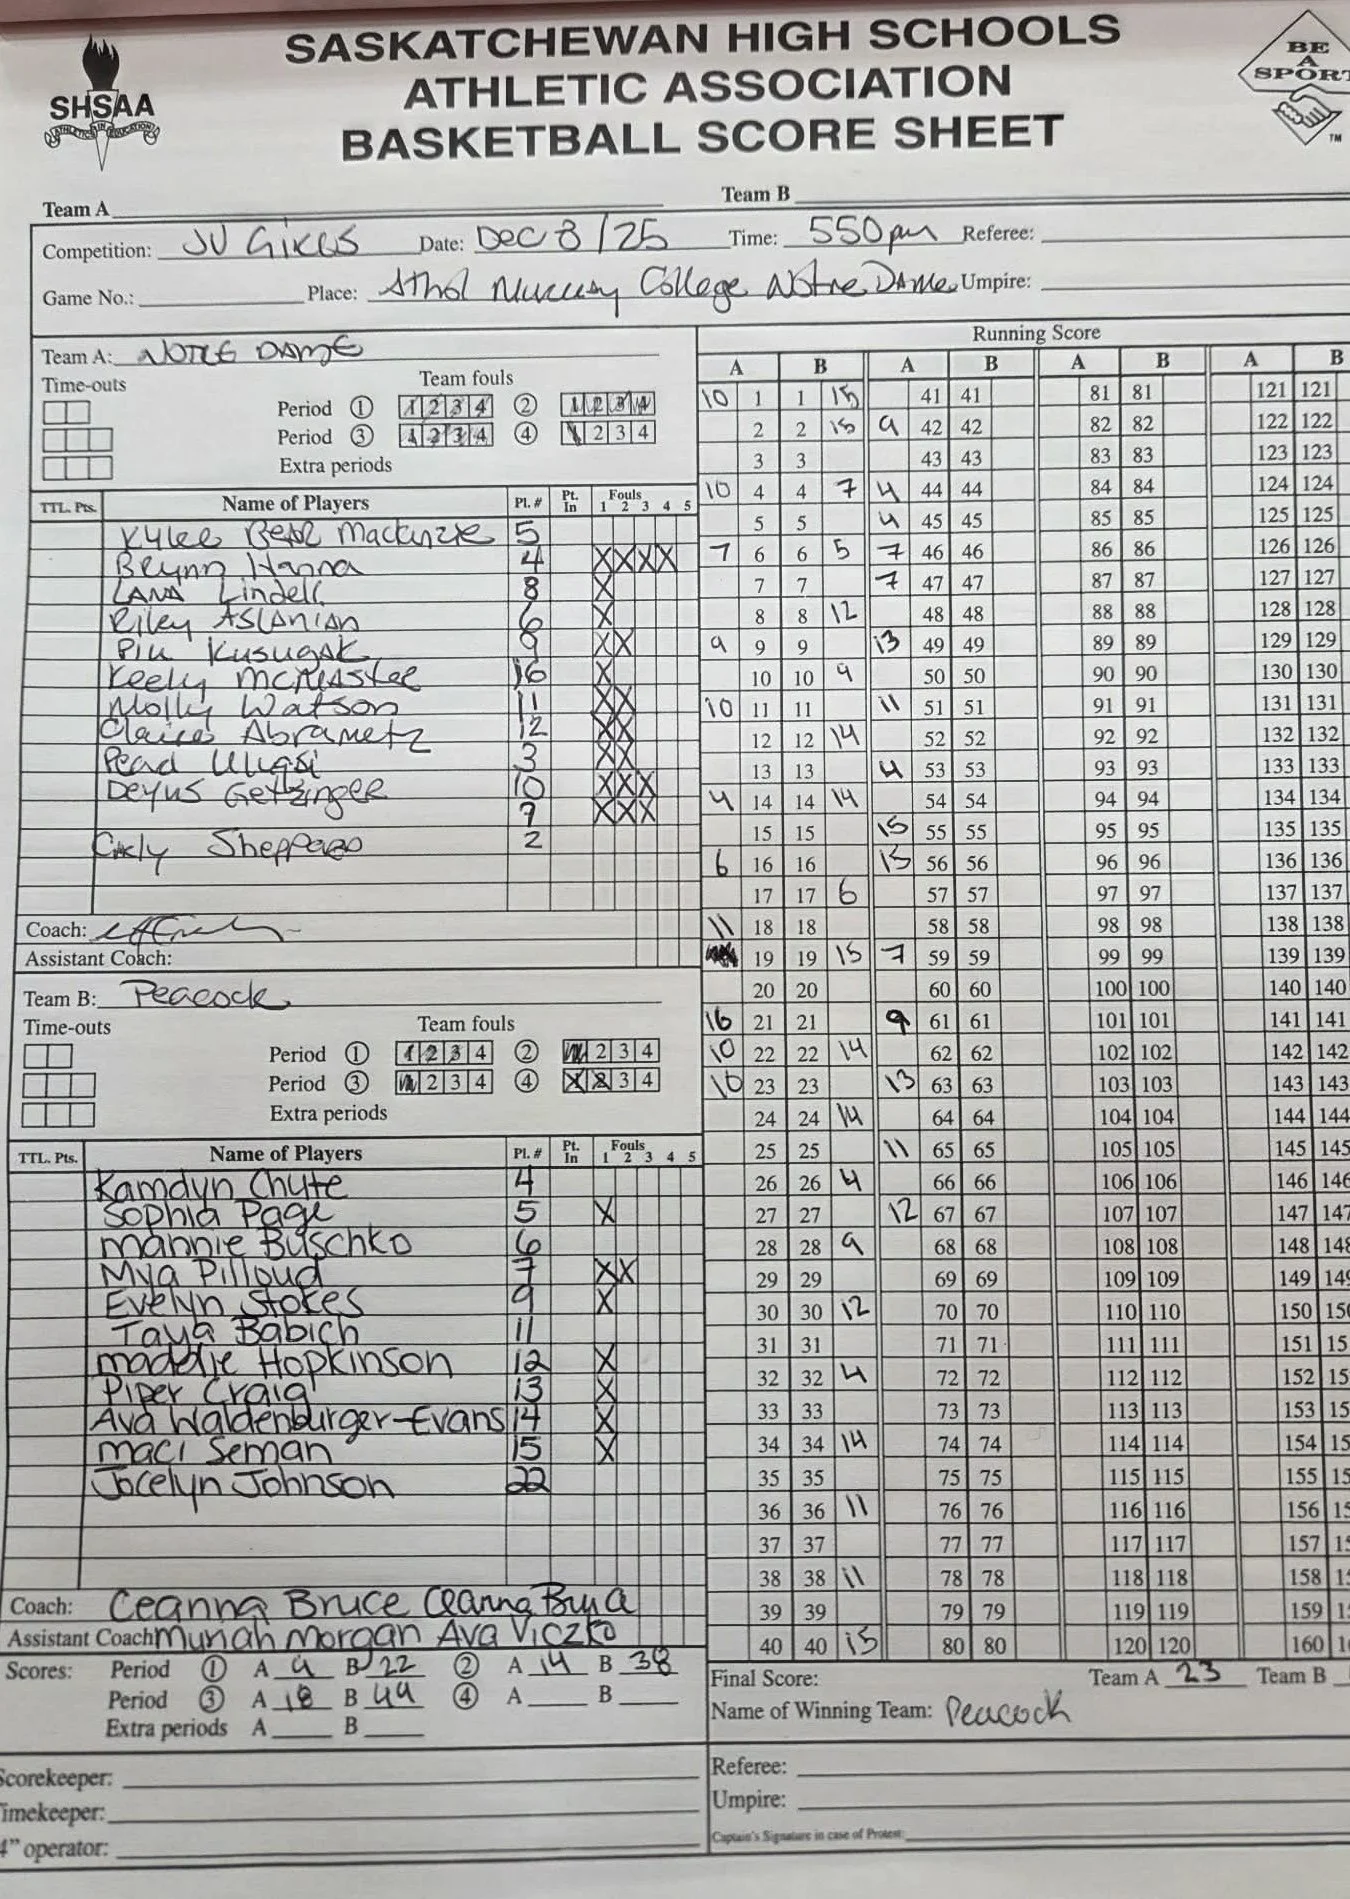 SASKATCHEWAN HIGH SCHOOLS
ATHLETIC ASSOCIATION
BASKETBALL SCORE SHEET
SHSAA
ATHLETICS IN EDUCATION
BE
A
SPORT
TM
Team A Team B
Competition: JV Girls Date: Dec 8/25 Time: 550pm Referee:
Game No.: Place: Athol Murray College Notre Dame Umpire:
Team A: NOTRE DAME
Time-outs Team fouls
Period 1 1 2 3 4 2 1 2 3 4
Period 3 1 2 3 4 4 1 2 3 4
Extra periods
TTL. Pts. Name of Players Pl. # Pt. In Fouls 1 2 3 4 5
Kylee Bear Mackinzie 5
Brynn Hanna 4 X X X X
LANA Lindell 8 X
Riley ASLANIAN 6 X
Kusugak 9 X X
Keely 16 X
Molly Watson 11 X X
Abrametz 12 X X
3 X X
Getzinger 10 X X X
7 X X X
Sheppard 2
Coach:
Assistant Coach:
Team B: Peacock
Time-outs Team fouls
Period 1 1 2 3 4 2 2 3 4
Period 3 2 3 4 4 X 2 3 4
Extra periods
TTL. Pts. Name of Players Pl. # Pt. In Fouls 1 2 3 4 5
Kamdyn Chyte 4
Sophia Page 5 X
Mannie Buschko 6
Mya Pilloud 7 X X
Evelyn Stokes 9 X
Taya Babich 11
Maddie Hopkinson 12 X
Piper Craig 13 X
Ava Waldenburger-Evans 14 X
Maci Seman 15 X
Jocelyn Johnson 22
Coach: Ceanna Bruce
Assistant Coach: Morgan Ava Viczko
Scores: Period 1 A 9 B 22 2 A 14 B 38
Period 3 A 18 B 49 4 A B
Extra periods A B
Scorekeeper:
Timekeeper:
4” operator:
Running Score
A B A B A B A B
10 1 1 15 41 41 81 81 121 121
2 2 15 9 42 42 82 82 122 122
3 3 43 43 83 83 123 123
10 4 4 7 4 44 44 84 84 124 124
5 5 4 45 45 85 85 125 125
7 6 6 5 7 46 46 86 86 126 126
7 7 7 47 47 87 87 127 127
8 8 12 48 48 88 88 128 128
9 9 9 13 49 49 89 89 129 129
10 10 9 50 50 90 90 130 130
10 11 11 11 51 51 91 91 131 131
12 12 14 52 52 92 92 132 132
13 13 4 53 53 93 93 133 133
4 14 14 14 54 54 94 94 134 134
15 15 15 55 55 95 95 135 135
6 16 16 15 56 56 96 96 136 136
17 17 6 57 57 97 97 137 137
11 18 18 58 58 98 98 138 138
19 19 15 7 59 59 99 99 139 139
20 20 60 60 100 100 140 140
16 21 21 9 61 61 101 101 141 141
10 22 22 14 62 62 102 102 142 142
10 23 23 13 63 63 103 103 143 143
24 24 14 64 64 104 104 144 144
25 25 11 65 65 105 105 145 145
26 26 4 66 66 106 106 146 146
27 27 12 67 67 107 107 147 147
28 28 9 68 68 108 108 148 148
29 29 69 69 109 109 149 149
30 30 12 70 70 110 110 150 150
31 31 71 71 111 111 151 15
32 32 4 72 72 112 112 152 15
33 33 73 73 113 113 153 15
34 34 14 74 74 114 114 154 15
35 35 75 75 115 115 155 15
36 36 11 76 76 116 116 156 15
37 37 77 77 117 117 157 15
38 38 11 78 78 118 118 158 15
39 39 79 79 119 119 159 15
40 40 15 80 80 120 120 160 16
Final Score: Team A 23 Team B
Name of Winning Team: Peacock
Referee:
Umpire:
Captain's Signature in case of Protest: